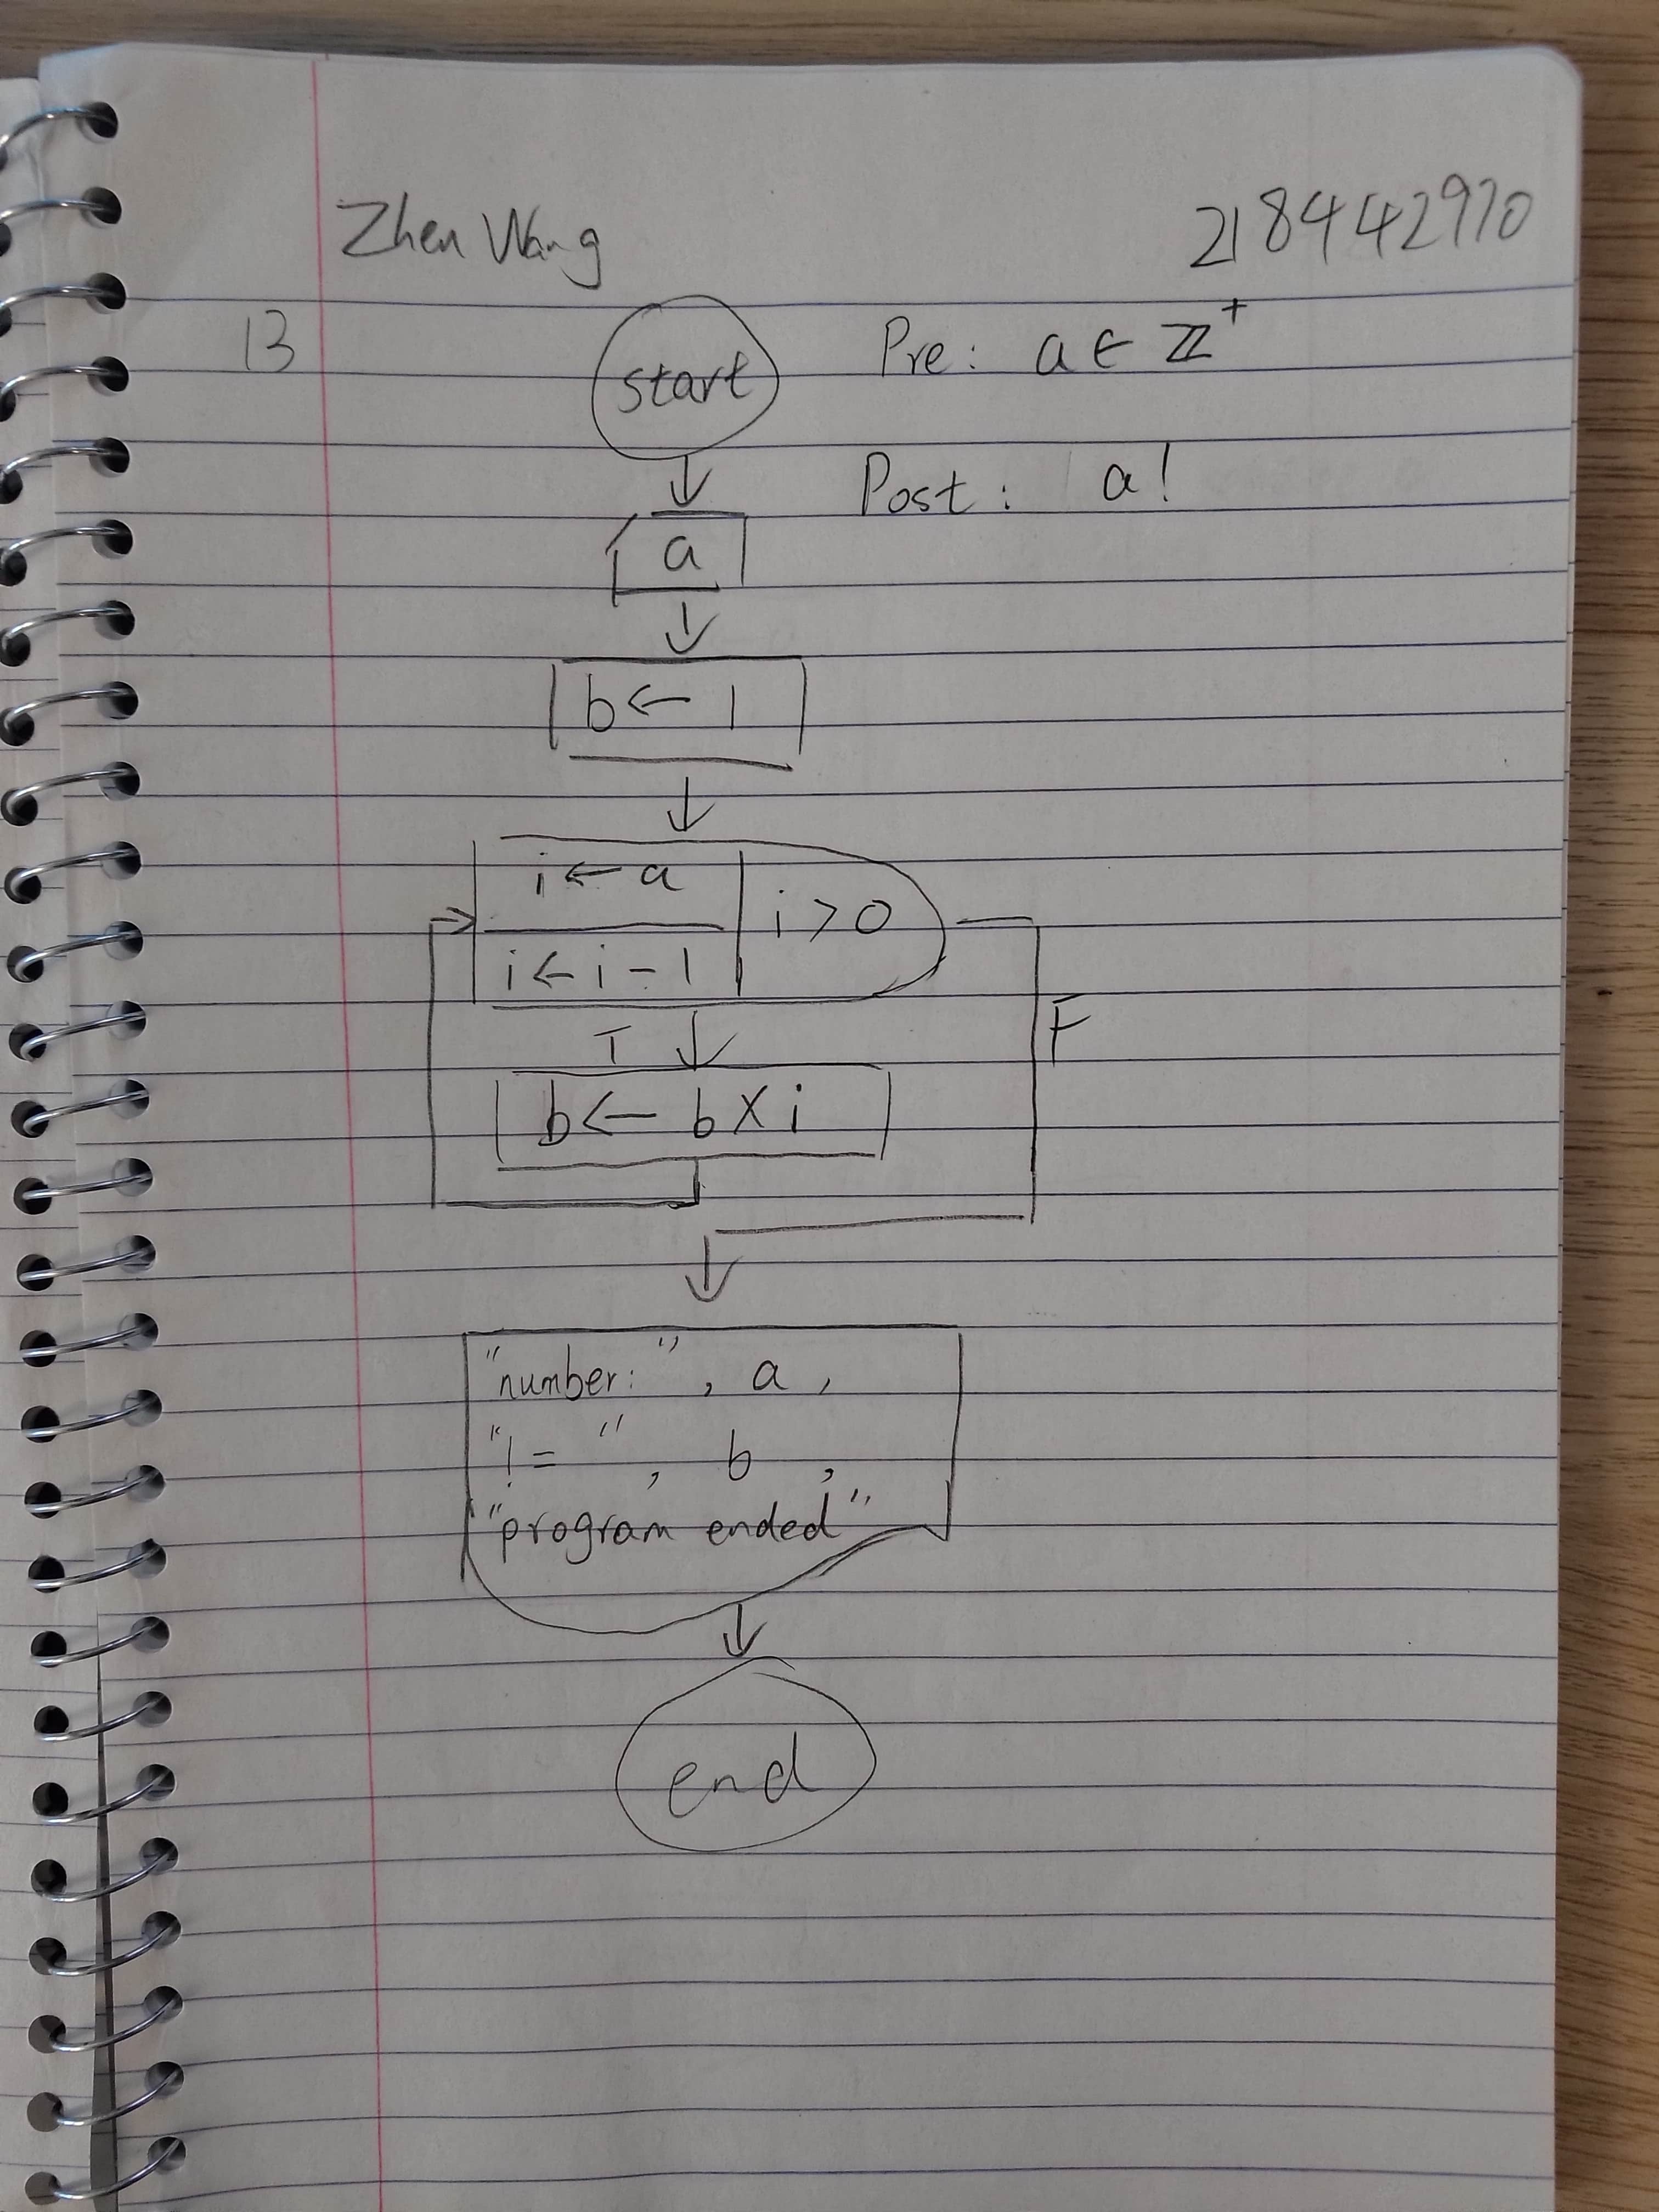 Zhen Wang 218442970
13
start Pre: a ∈ ℤ⁺
Post: a!
a
b ← 1
i ← a
i > 0
i ← i - 1
T
F
b ← b × i
"number: ", a,
"! = ", b,
"program ended"
end